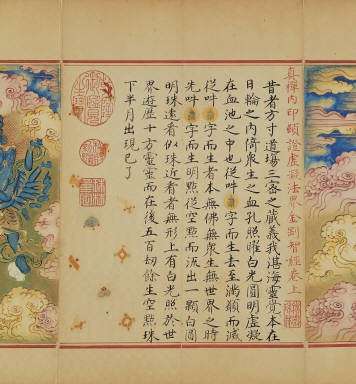 真禪內印頓證虛凝法界金剛智經卷上
昔者方寸道場三密之藏義我湛海靈覺本在
日輪之內筒衆生之血孔照曜白光圓明虛凝
在血池之中也從吽字而生去至滿顛而減
從吽字而生者本無佛無衆生無世界之時
先吽字而生明點從空點而流出一顆白圓
明珠遠看似珠近看者無形上有白光照於世
界遊歷十方靈靈而在後五百劫餘生空點珠
下半月出現已了